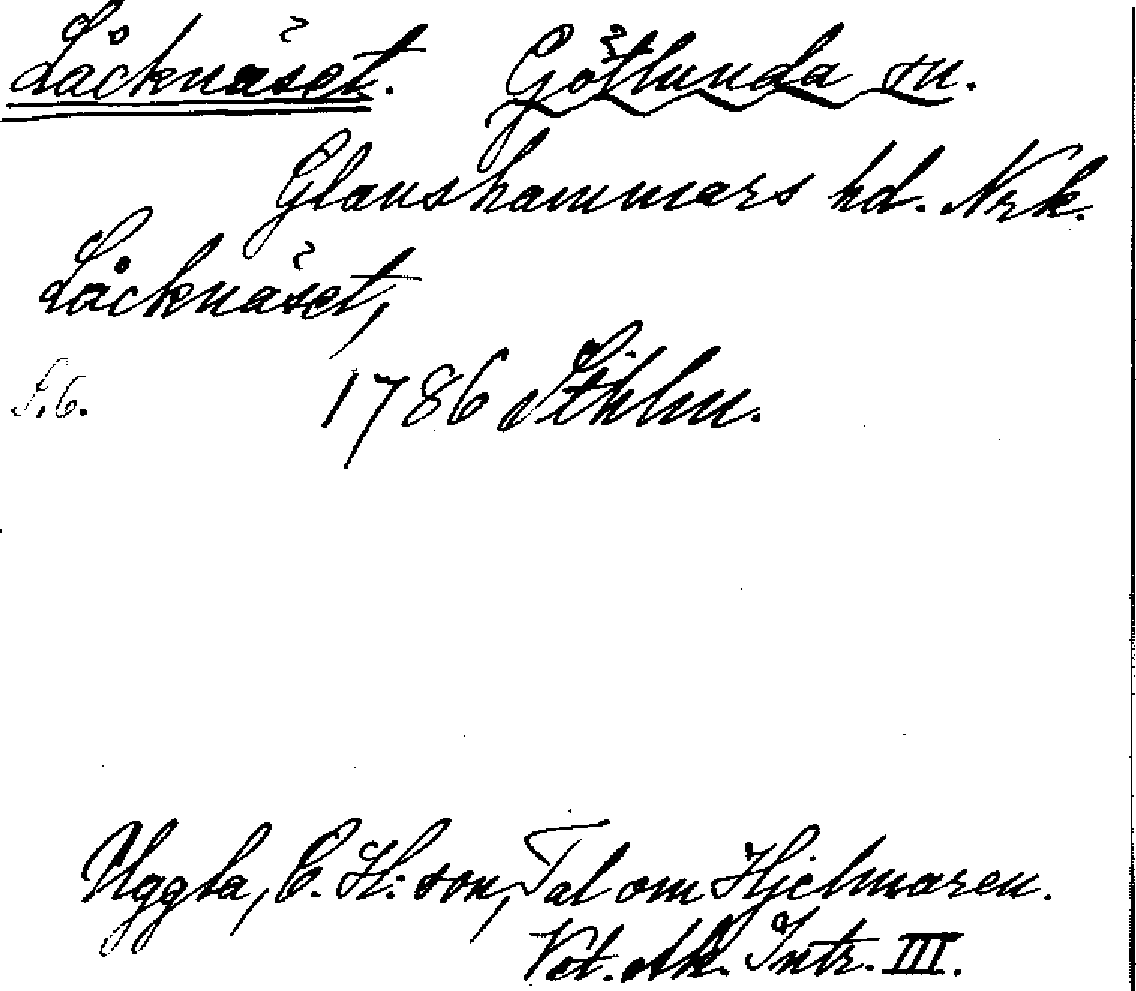 Låcknäset. Götlunda sn.
Glanshammars hd. Nrk.
Låcknäset,
S.6. 1786 Sthlm.
Uggla, C. H:son, Tal om Hjelmaren.
Vet. Ak. Intr. III.